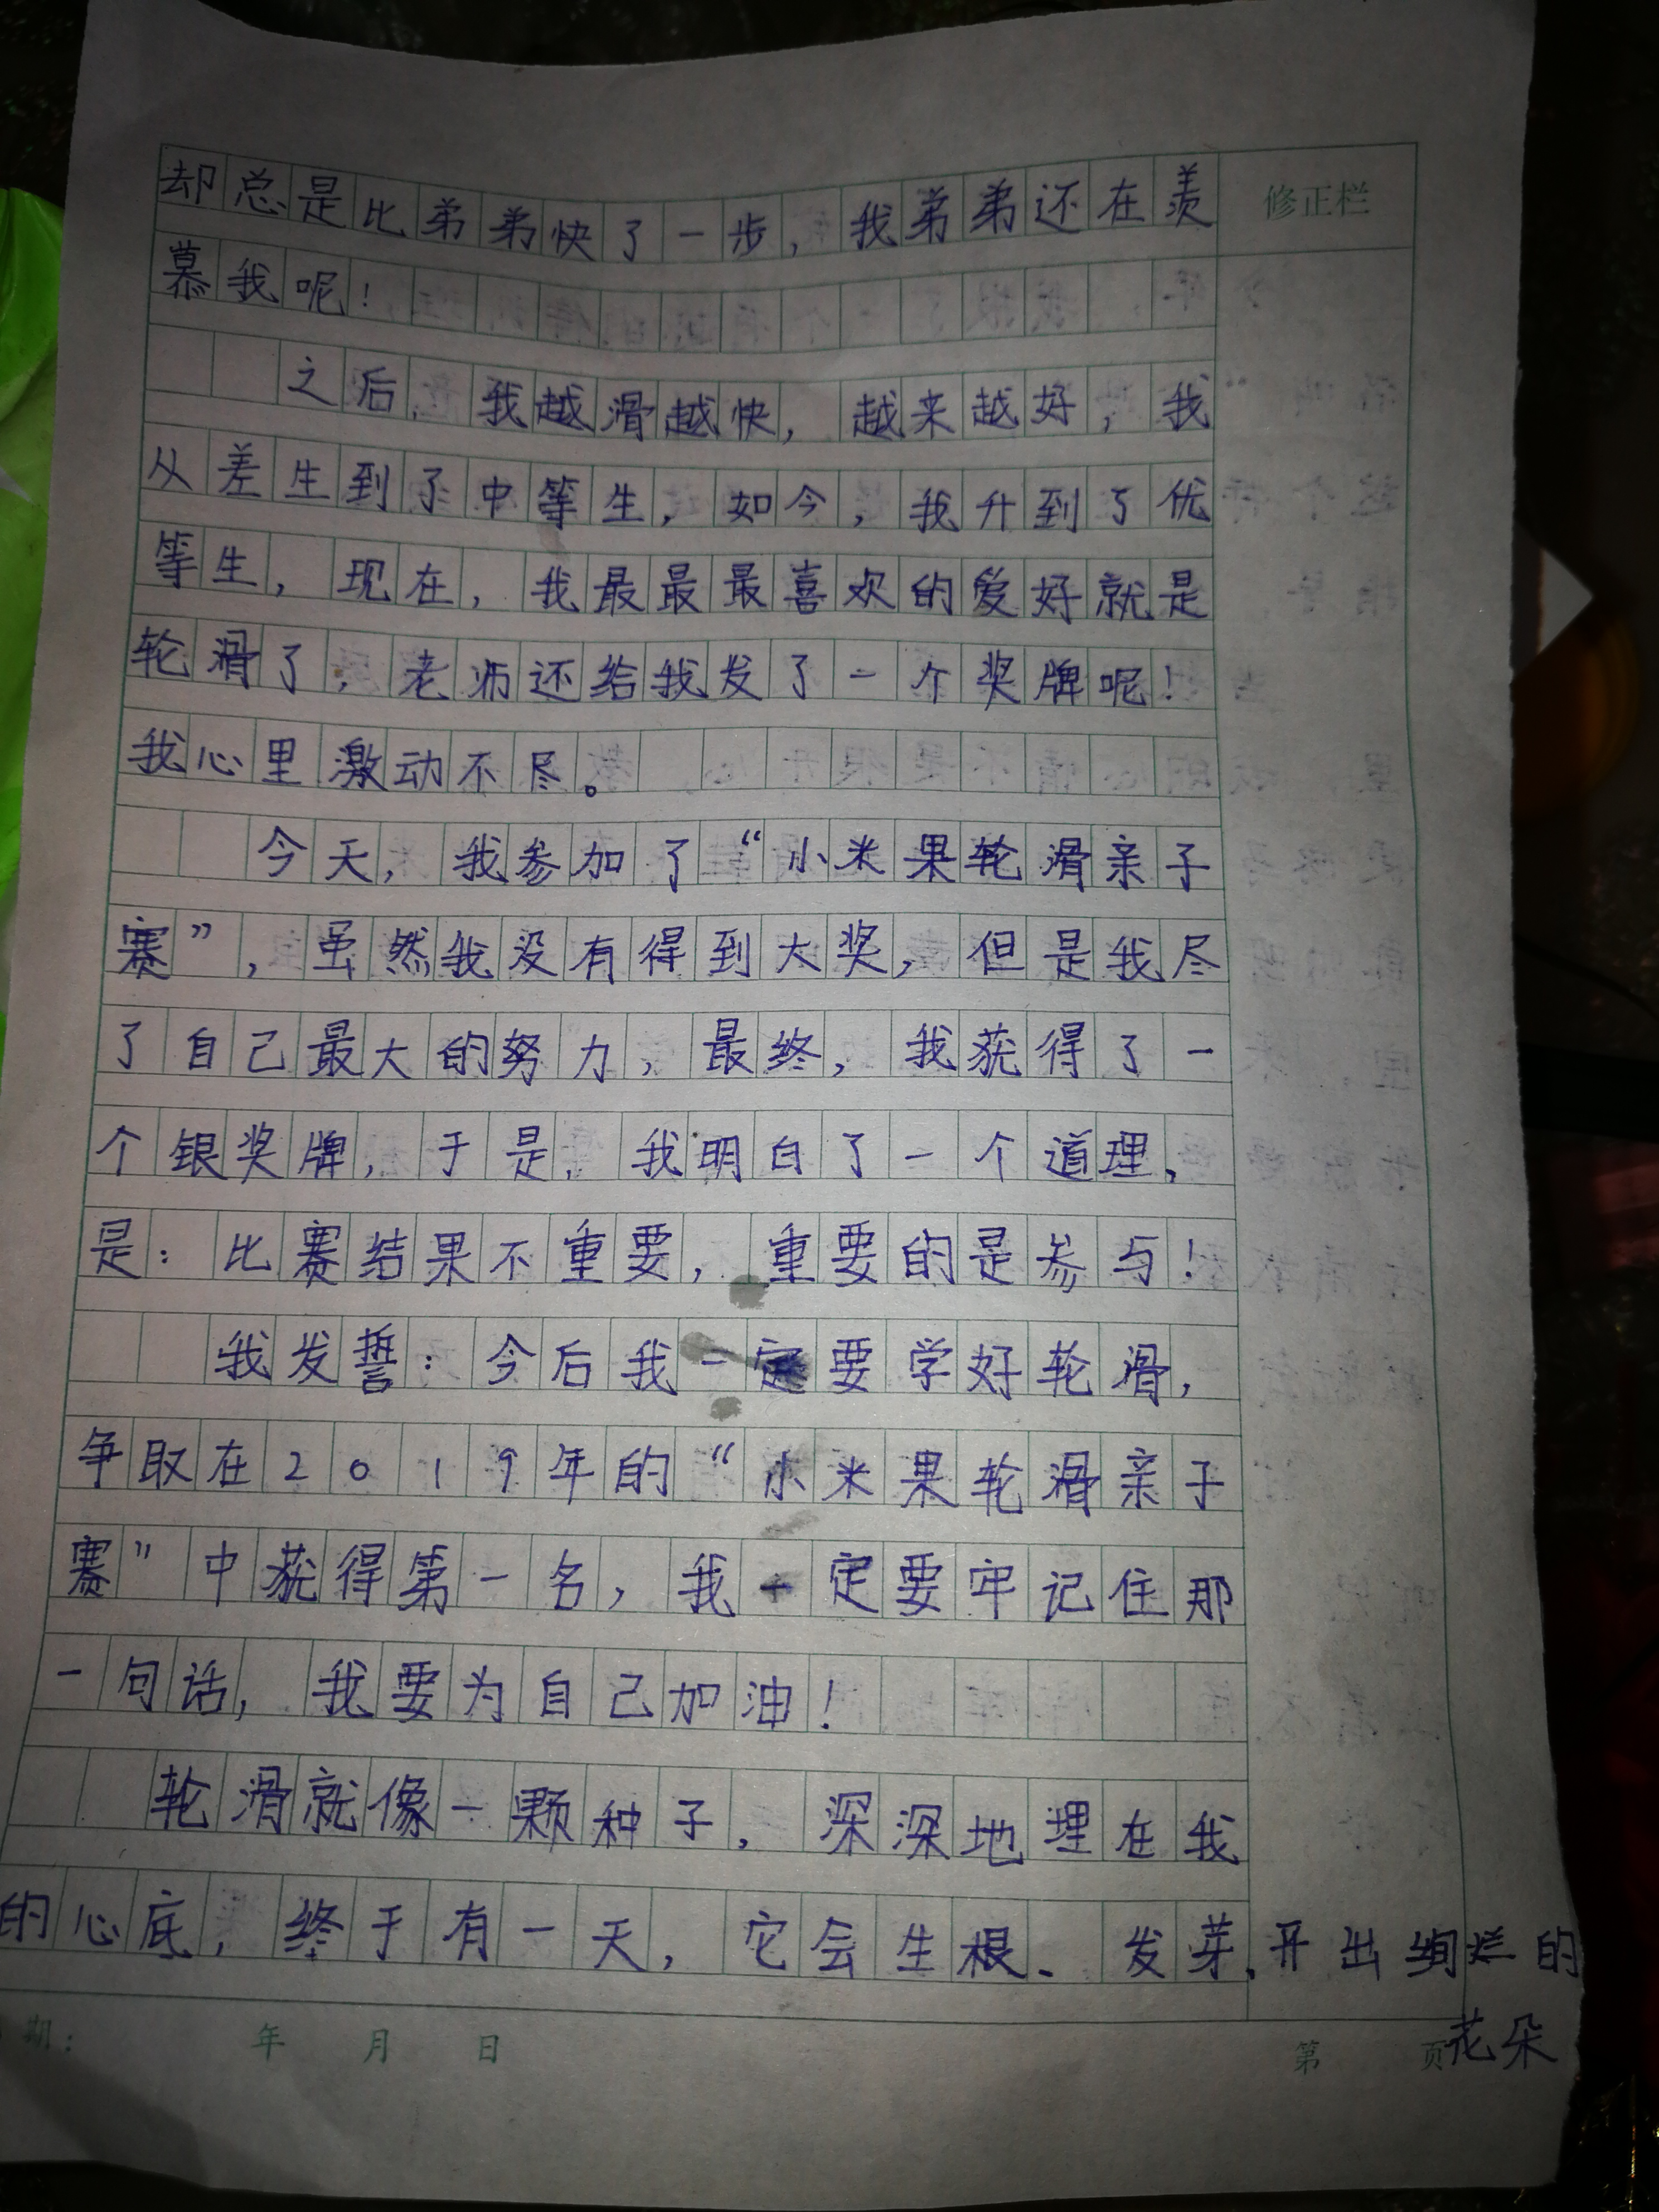 却总是比弟弟快了一步，我弟弟还在羡
修正栏
慕我呢！
之后，我越滑越快，越来越好，我
从差生到了中等生，如今，我升到了优
等生，现在，我最最最喜欢的爱好就是
轮滑了，老师还给我发了一个奖牌呢！
我心里激动不尽。
今天，我参加了“小米果轮滑亲子
赛”，虽然我没有得到大奖，但是我尽
了自己最大的努力，最终，我获得了一
个银奖牌，于是，我明白了一个道理，
是：比赛结果不重要，重要的是参与！
我发誓：今后我一定要学好轮滑，
争取在2019年的“小米果轮滑亲子
赛”中获得第一名，我一定要牢记住那
一句话，我要为自己加油！
轮滑就像一颗种子，深深地埋在我
的心底，终于有一天，它会生根、发芽、开出绚烂的
花朵
期： 年 月 日
第 页